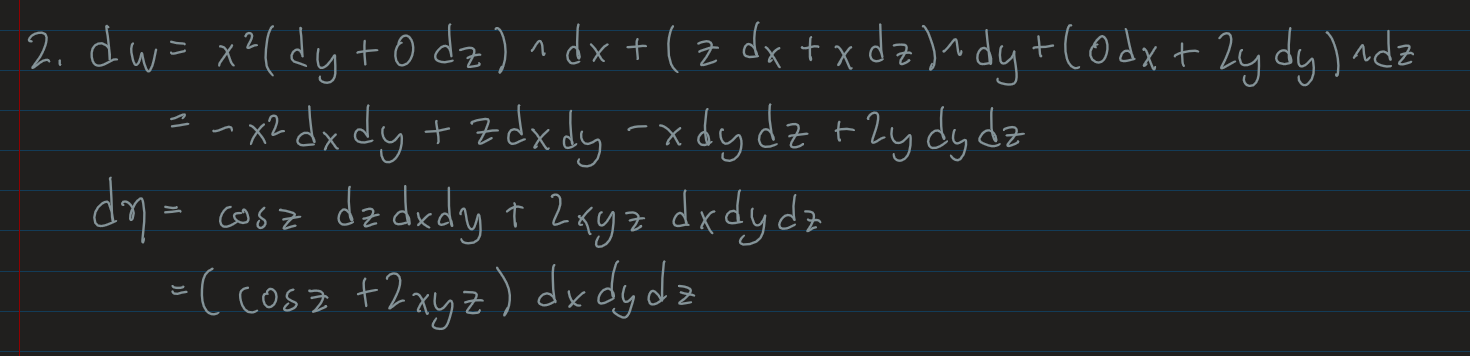 2. dw = x²(dy + 0 dz) ∧ dx + (z dx + x dz) ∧ dy + (0dx + 2y dy) ∧ dz
= -x² dx dy + z dx dy - x dy dz + 2y dy dz
dη = cos z dz dx dy + 2xyz dx dy dz
= (cos z + 2xyz) dx dy dz